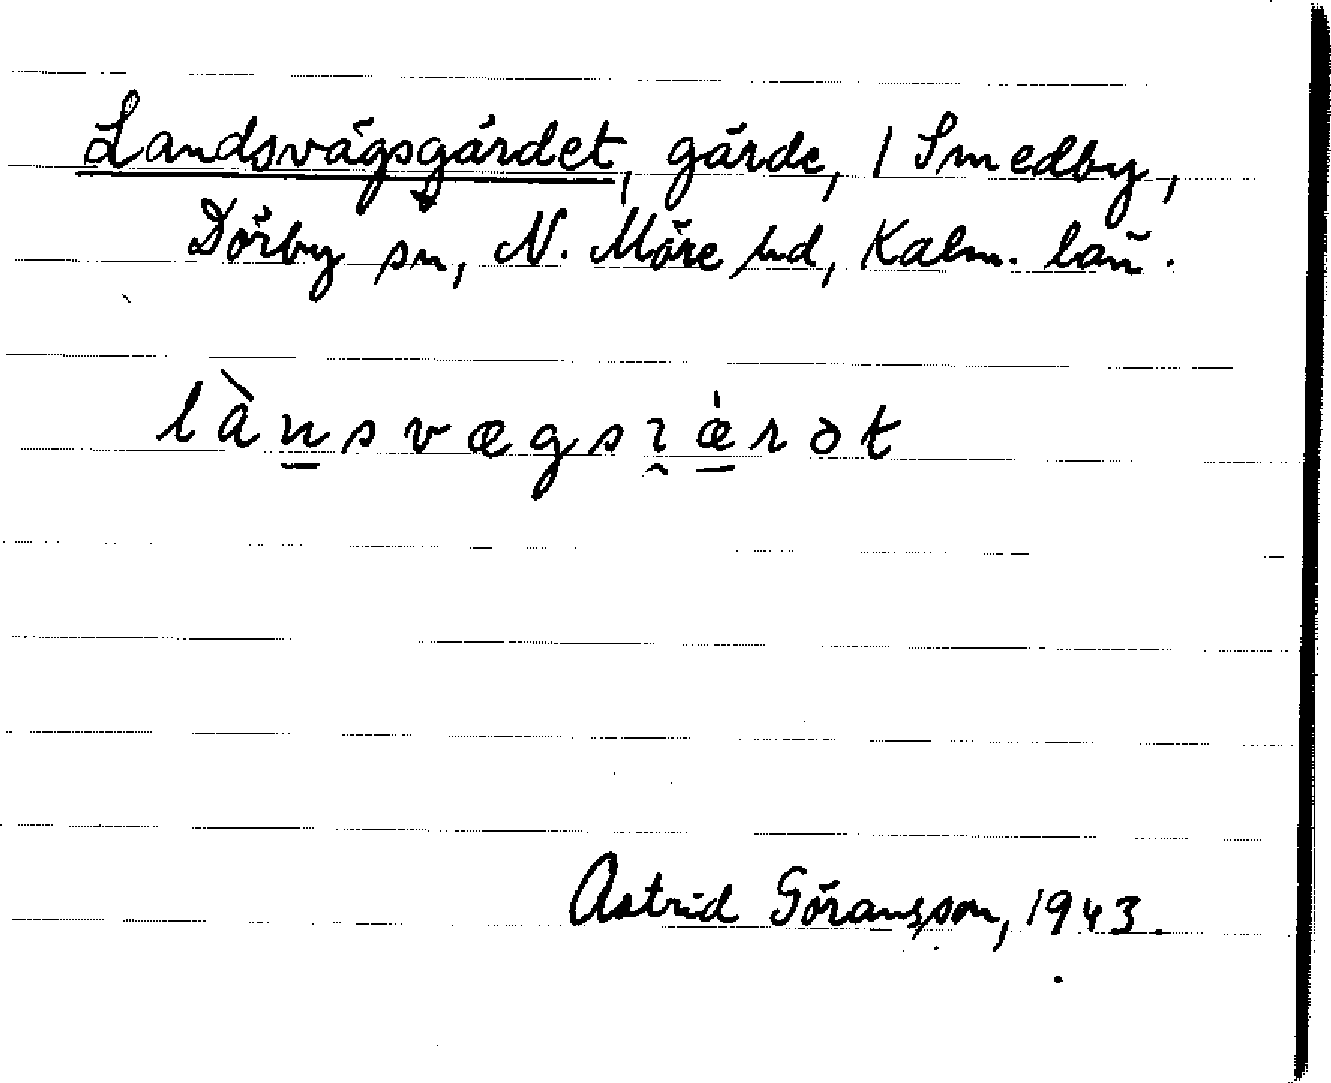 Landsvägsgärdet, gärde, 1 Smedby,
Dörby sn, N. Möre hd, Kalm. län.
Astrid Göransson, 1943.